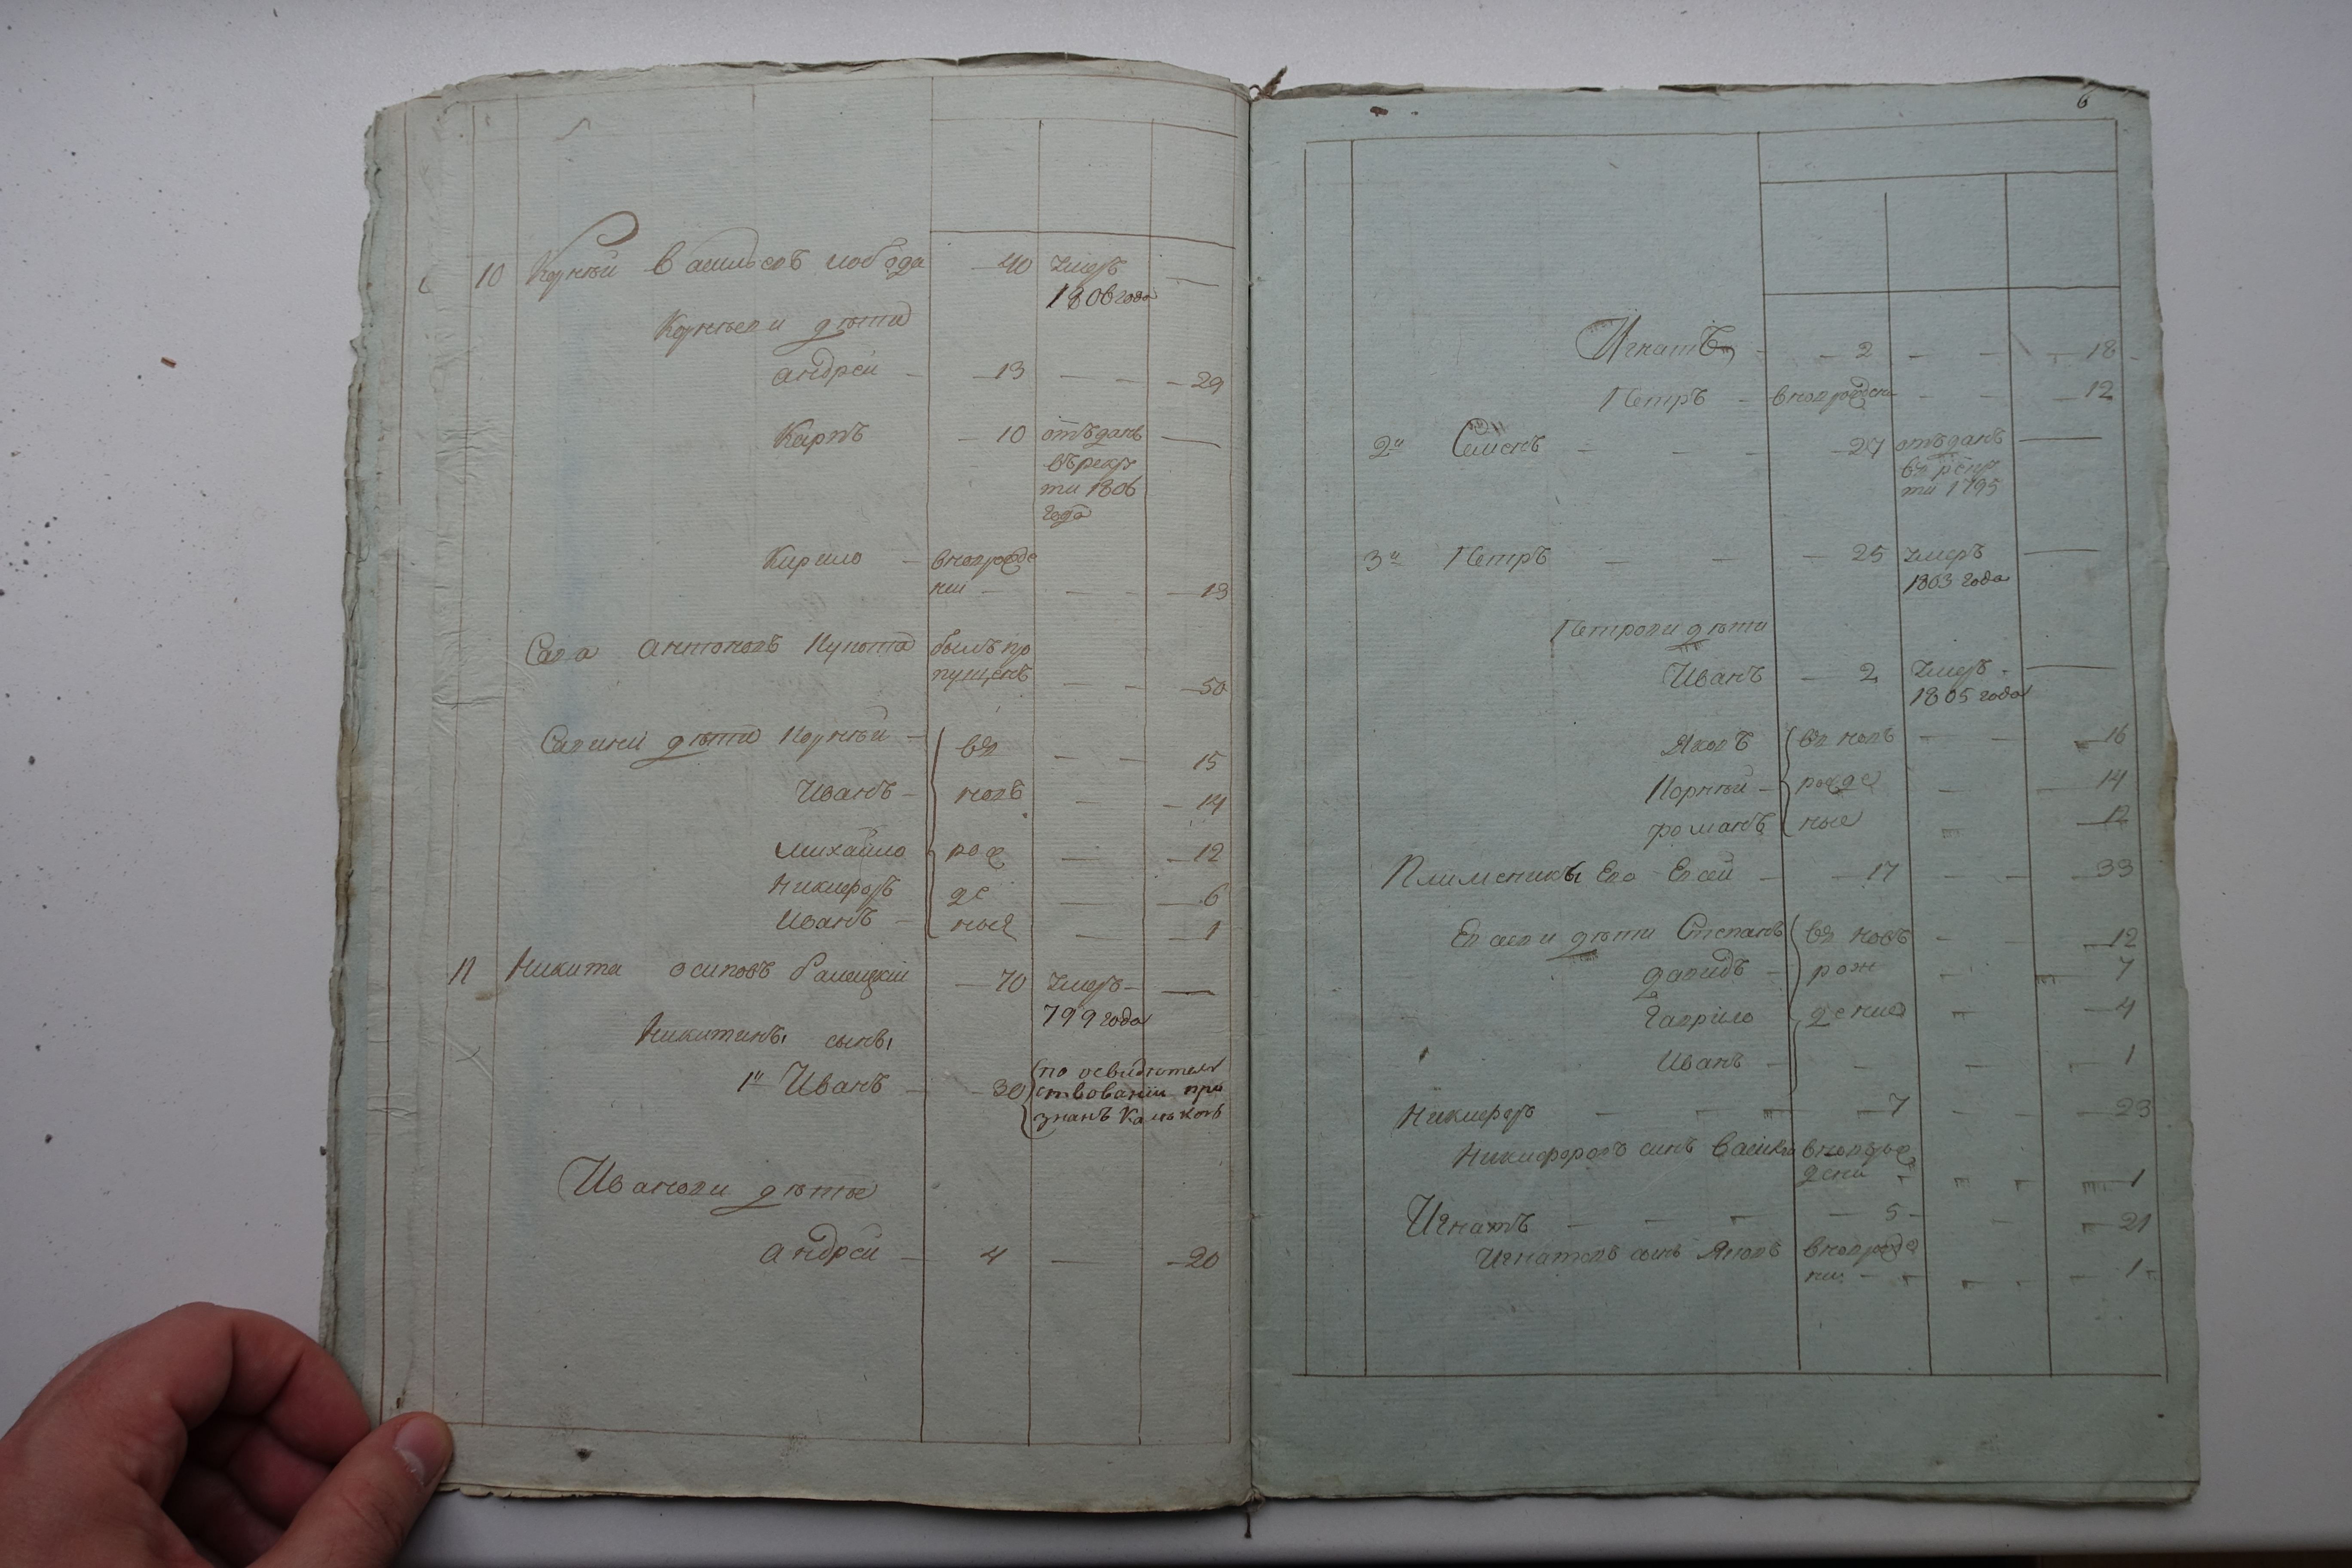 10 Корнѣй Васильовъ Лобода — 40 умеръ —
1806 года
Корнѣеви дѣти
Андрей — 13 — — 29
Карпъ — 10 отъданъ —
въ рекру
ти 1806
года
Кирило — вновъ рожде
ний — — — 13
Сава Антоновъ Кукота былъ про
пущенъ — — 50
Савини дѣти Корнѣй — въ — — 15
Иванъ — новъ — — 14
Михайло рож — — 12
Никифоръ де — — 6
Иванъ — ныя — — 1
11 Никита Осиповъ — 70 умеръ — —
799 года
Никитинъ сынъ
1й Иванъ — 30 по освидѣтель
ствованіи при
знанъ
Ивановы дѣти
Андрей — 4 — — 20
6
Игнатъ — 2 — — 18
Петръ — вновъ рожден — — 12
2й Семенъ — — — 27 отъданъ —
въ рекру
ти 1795
3й Петръ — — — 25 умеръ —
1803 года
Петрови дѣти
Иванъ — 2 умеръ —
1805 года
Яковъ въ новъ — — 16
Корнѣй — рожде — — 14
Романъ ные — 12
Племеникы Его Евсей — — 17 — — 33
Евсеви дѣти Степанъ въ новъ — — 12
Давидъ — рож — — 7
Гаврило дение — — 4
Иванъ — — — 1
Никифоръ — — — — 7 — — 23
Никифоровъ синъ Василій вновъ рож
дени — — — 1
Игнатъ — — — — 5 — — 21
Игнатовъ сынъ Яковъ вновъ рожде
ни — — — — 1